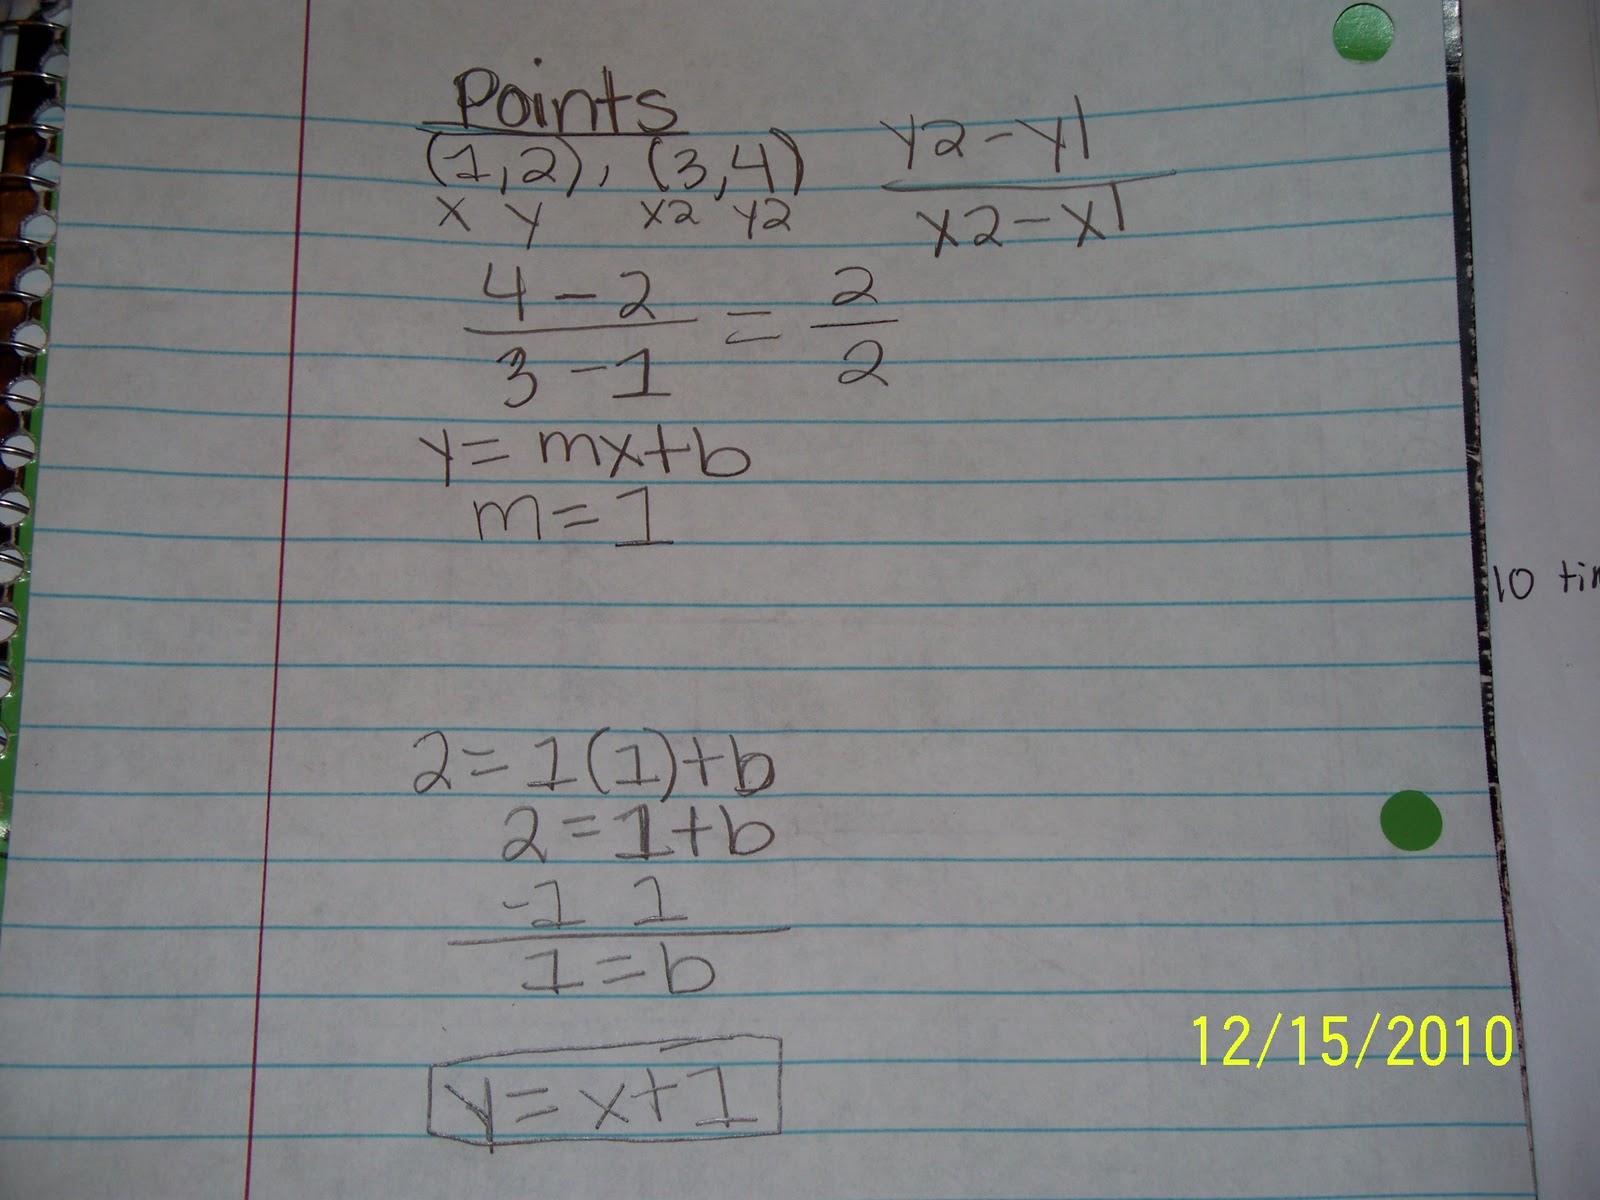 Points
(1,2), (3,4)
x y x2 y2
y2-y1
x2-x1
4-2 = 2
3-1 2
y=mx+b
m=1
2=1(1)+b
2=1+b
-1 1
1=b
y=x+1
10
12/15/2010